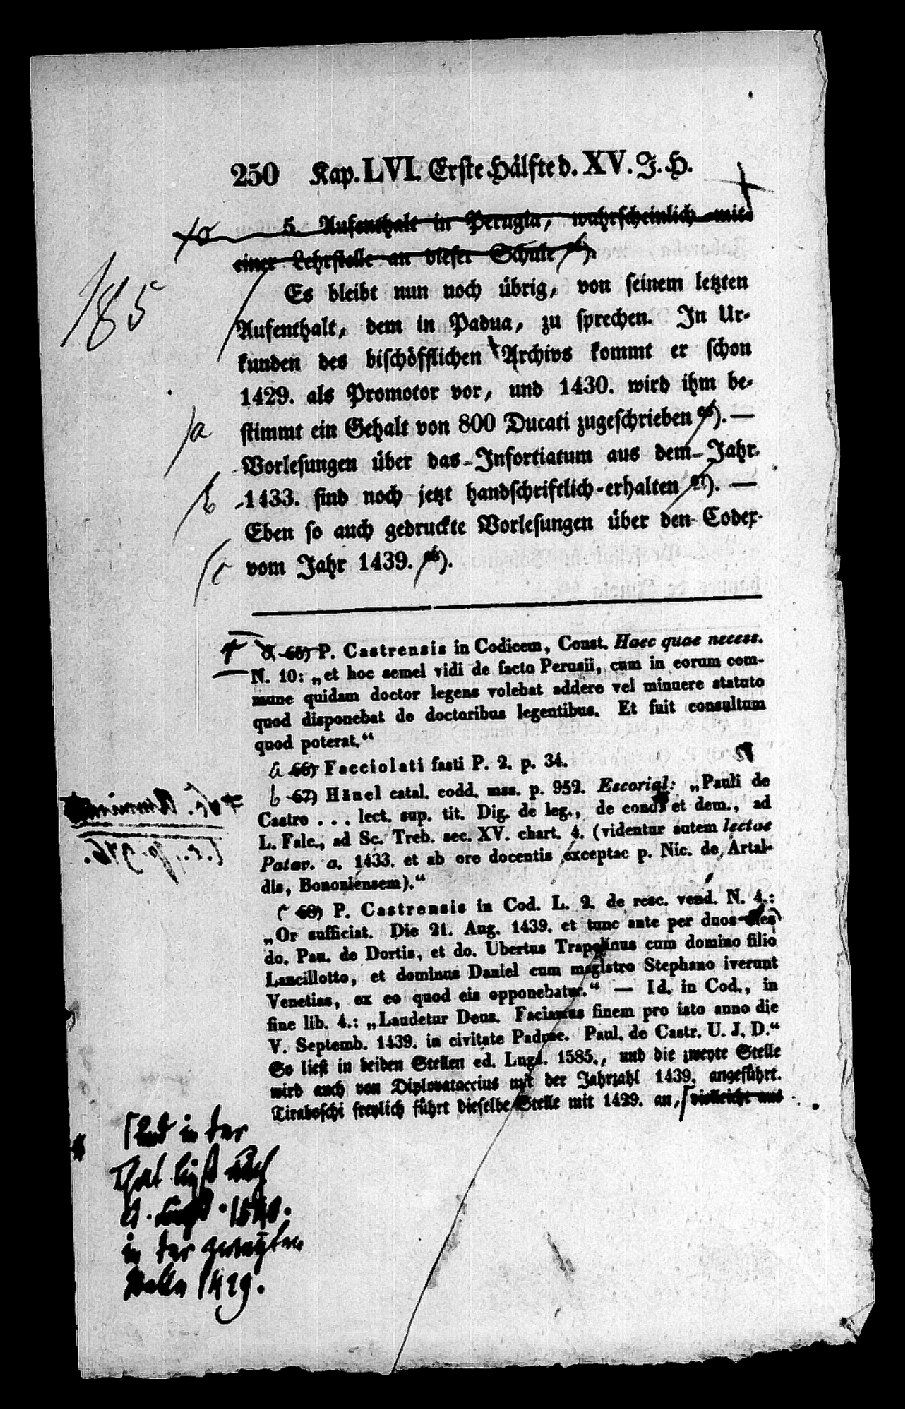 250 Kap. LVI. Erste Hälfte d. XV. J. H.
5. Aufenthalt in Perugia, wahrscheinlich mit
einer Lehrstelle an dieser Schule
185
Es bleibt nun noch übrig, von seinem letzten
Aufenthalt, dem in Padua, zu sprechen. In Ur-
kunden des bischöfflichen Archivs kommt er schon
1429. als Promotor vor, und 1430. wird ihm be-
a stimmt ein Gehalt von 800 Ducati zugeschrieben 66). —
Vorlesungen über das Infortiatum aus dem Jahr
b 1433. sind noch jetzt handschriftlich erhalten 67). —
Eben so auch gedruckte Vorlesungen über den Codex
c vom Jahr 1439. 68).
65) P. Castrensis in Codicem, Const. Haec quae necess.
N. 10: „et hoc semel vidi de facto Perusii, cum in eorum com-
mune quidam doctor legens volebat addere vel minuere statuto
quod disponebat de doctoribus legentibus. Et fuit consultum
quod poterat.“
a 66) Facciolati fasti P. 2. p. 34.
b 67) Hänel catal. codd. mss. p. 952. Escorial: „Pauli de
Castro . . . lect. sup. tit. Dig. de leg., de cond. et dem., ad
L. Falc., ad Sc. Treb. sec. XV. chart. 4. (videntur autem lectae
Patav. a. 1433. et ab ore docentis exceptae p. Nic. de Artal-
dis, Bononiensem).“
c 68) P. Castrensis in Cod. L. 2. de resc. vend. N. 4.:
„Or sufficiat. Die 21. Aug. 1439. et tunc ante per duos dies
do. Pau. de Dortis, et do. Ubertus Trapelinus cum domino filio
Lancillotto, et dominus Daniel cum magistro Stephano iverunt
Venetias, ex eo quod eis opponebatur.“ — Id. in Cod., in
fine lib. 4.: „Laudetur Deus. Faciamus finem pro isto anno die
V. Septemb. 1439. in civitate Paduae. Paul. de Castr. U. J. D.“
So liest in beiden Stellen ed. Lugd. 1585., und die zweyte Stelle
wird auch von Diplovataccius mit der Jahrzahl 1439. angeführt.
Tiraboschi freylich führt dieselbe Stelle mit 1429. an, vielleicht aus
und in der
That liest auch
in der zweyten
Stelle 1429.